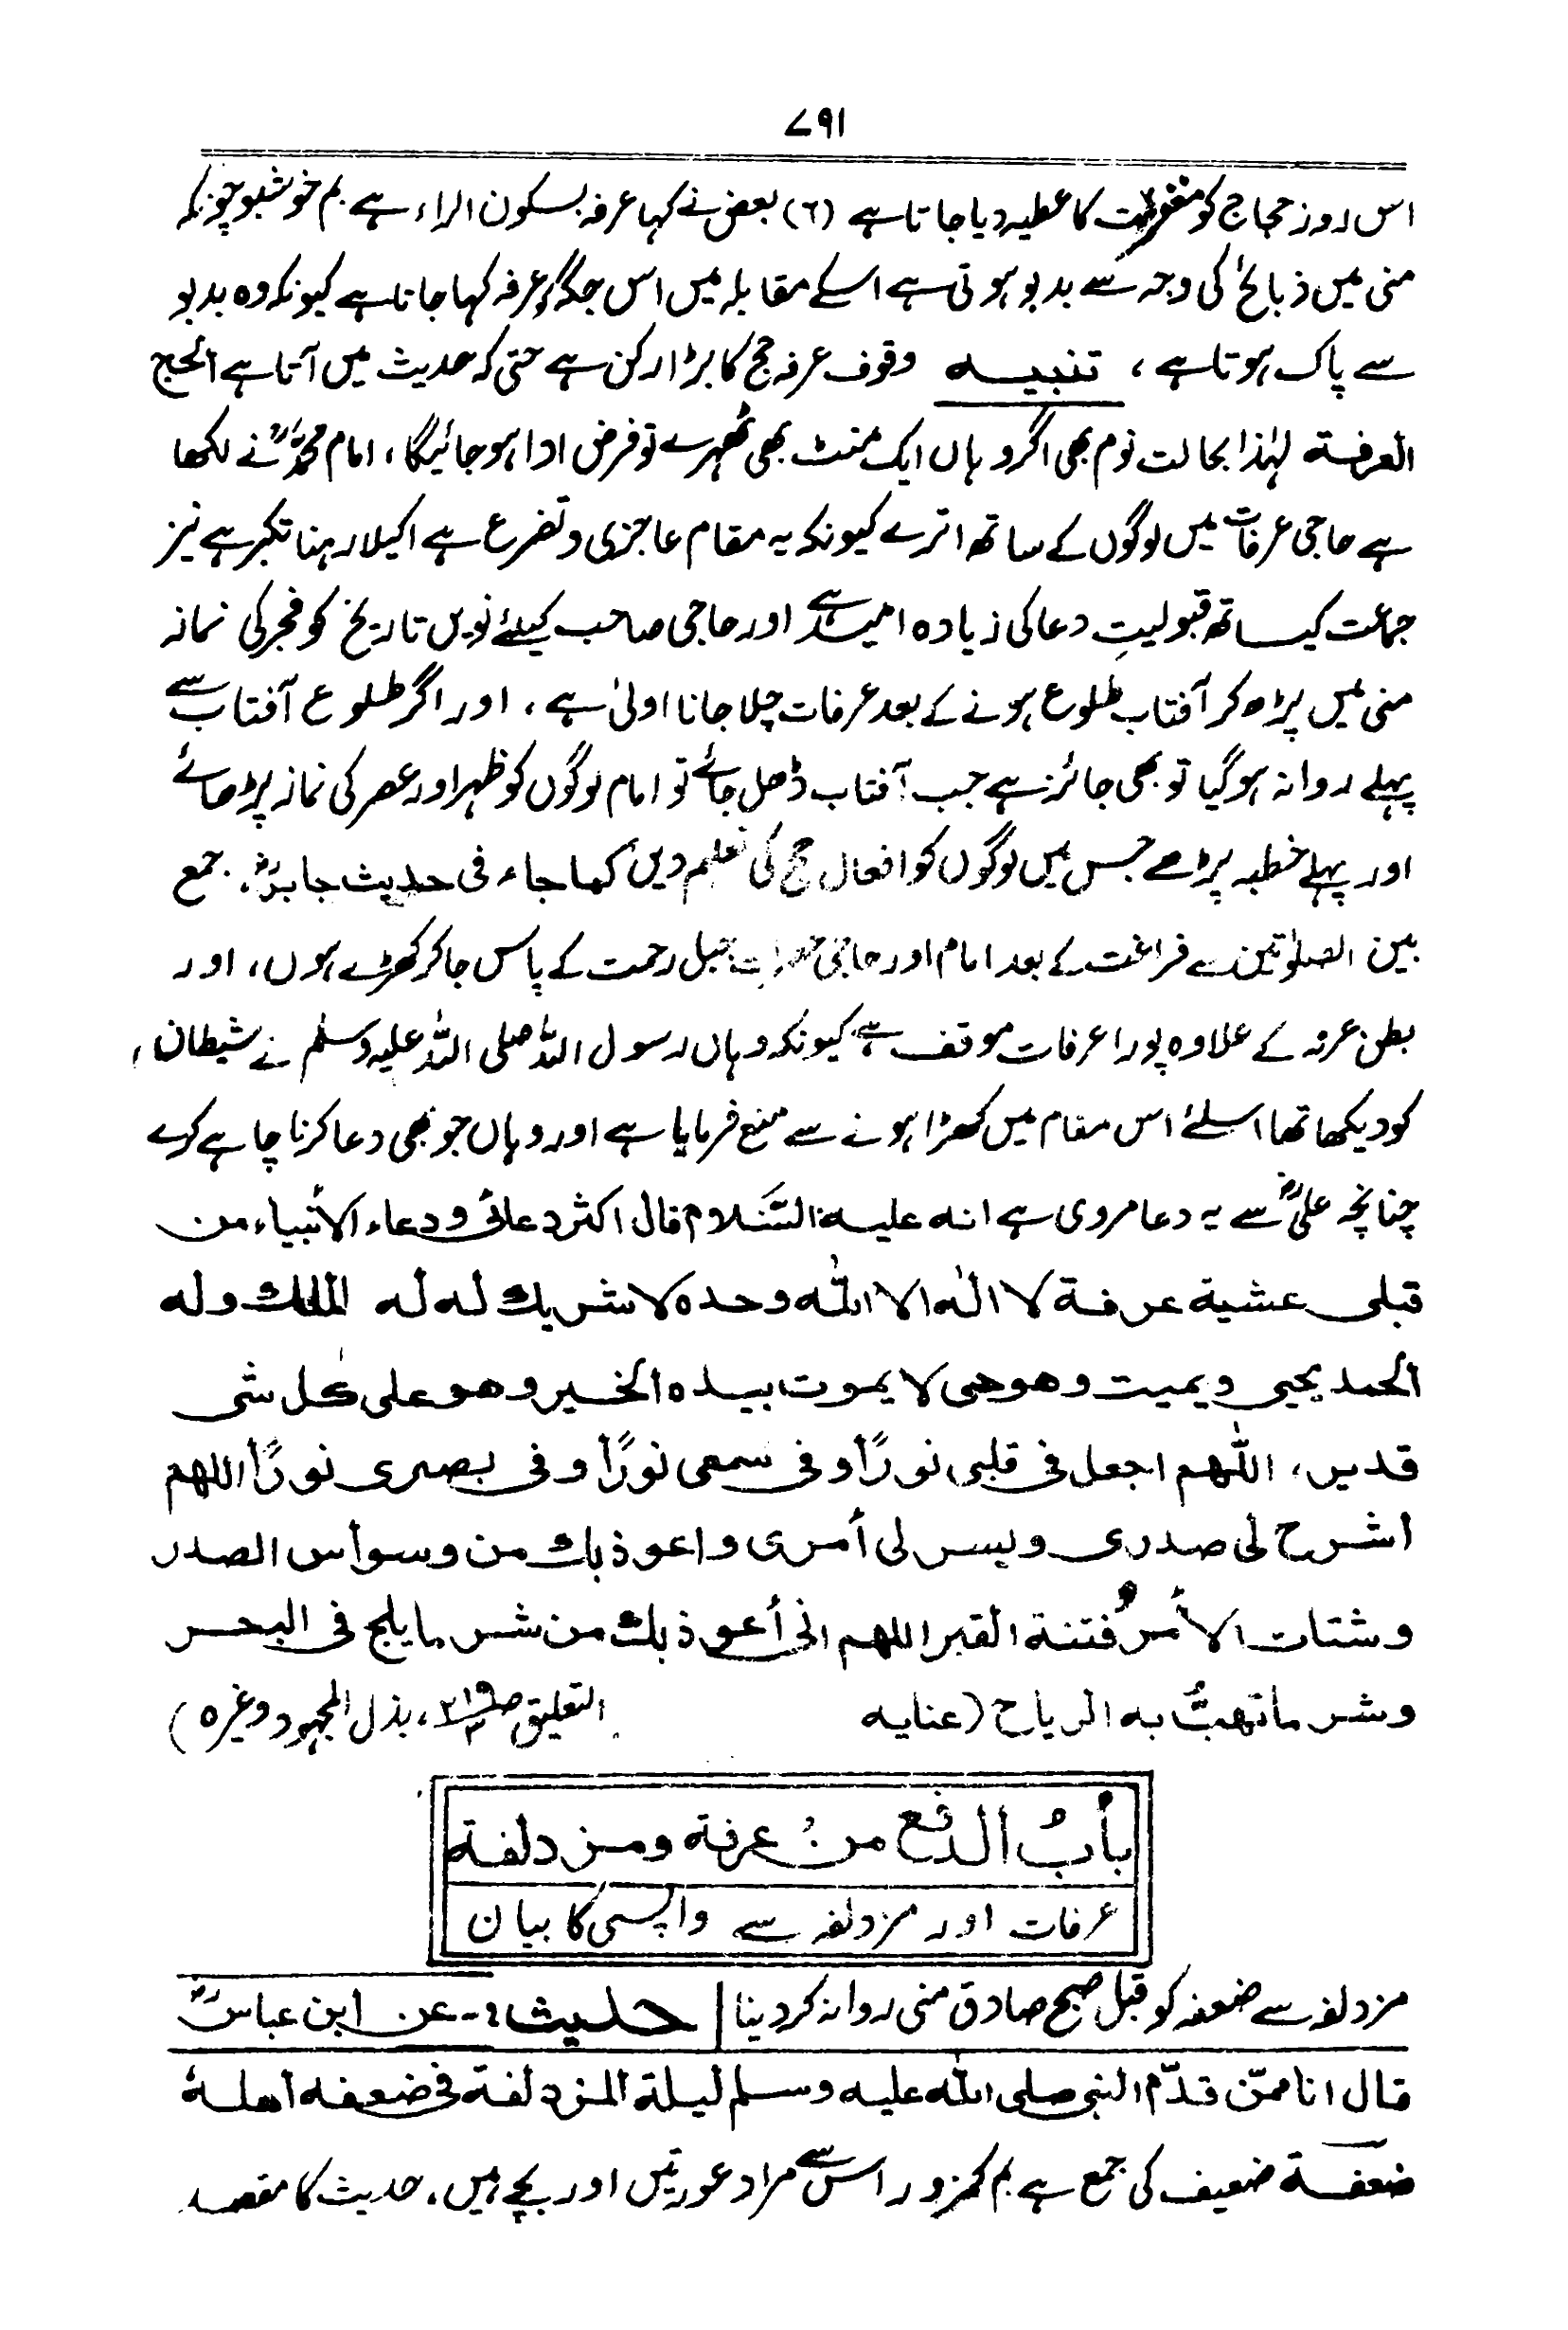 ۷۹۱
اس روز حجاج کو مغفرت کا عطیہ دیا جاتا ہے (٦) بعض نے کہا عرفہ بسکون الراء ہے بم خوشبو چونکہ
منی میں ذبائح کی وجہ سے بدبو ہوتی ہے اسکے مقابلہ میں اس جگہ کو عرفہ کہا جاتا ہے کیونکہ وہ بدبو
سے پاک ہوتا ہے ، تنبیہ وقوف عرفہ حج کا بڑا رکن ہے حتی کہ حدیث میں آتا ہے الحج
العرفة لہٰذا بحالت نوم بھی اگر وہاں ایک منٹ بھی ٹھہرے تو فرض ادا ہو جائیگا ، امام محمدؒ نے لکھا
ہے حاجی عرفات میں لوگوں کے ساتھ اترے کیونکہ یہ مقام عاجزی و تضرع ہے اکیلا رہنا تکبر ہے نیز
جماعت کیساتھ قبولیتِ دعا کی زیادہ امید ہے اور حاجی صاحب کیلئے نویں تاریخ کو فجر کی نماز
منی میں پڑھ کر آفتاب طلوع ہونے کے بعد عرفات چلا جانا اولیٰ ہے ، اور اگر طلوع آفتاب سے
پہلے روانہ ہو گیا تو بھی جائز ہے جب آفتاب ڈھل جائے تو امام لوگوں کو ظہر اور عصر کی نماز پڑھائے
اور پہلے خطبہ پڑھے جس میں لوگوں کو افعال حج کی تعلیم دیں کما جاء فی حدیث جابرؓ ، جمع
بین الصلوٰتین سے فراغت کے بعد امام اور حاجی حضرات جبل رحمت کے پاس جا کر کھڑے ہوں ، اور
بطن عرنہ کے علاوہ پورا عرفات موقف ہے کیونکہ وہاں رسول اللہ صلی اللہ علیہ وسلم نے شیطان
کو دیکھا تھا اسلئے اس مقام میں کھڑا ہونے سے منع فرمایا ہے اور وہاں جو بھی دعا کرنا چاہے کرے
چنانچہ علیؓ سے یہ دعا مروی ہے انه عليه السَّلام قال اكثر دعائى ودعاء الأنبياء من
قبلى عشية عرفة لا اله الا الله وحده لا شريك له له الملك وله
الحمد يحيى ويميت وهو حى لا يموت بيده الخير وهو على كل شى
قدير، اللهم اجعل فى قلبى نورًا وفى سمعى نورًا وفى بصرى نورًا اللهم
اشرح لى صدرى ويسر لى أمرى واعوذ بك من وسواس الصدر
وشتات الأمر وفتنة القبر اللهم انى أعوذ بك من شر ما يلج فى البحر
وشر ما تهبُّ به الرياح (عنايه التعلیق ص۲۱۹، بذل المجہود وغیرہ )
بابُ الدفع من عرفة ومزدلفة
عرفات اور مزدلفہ سے واپسی کا بیان
مزدلفہ سے ضعفہ کو قبل صبح صادق منی روانہ کر دینا | حديث :- عن ابن عباسؓ
قال انا ممّن قدّم النبى صلى الله عليه وسلم ليلة المزدلفة فى ضعفه اهله
ضعفة ضعیف کی جمع ہے بم کمزور اس سے مراد عورتیں اور بچے ہیں ، حدیث کا مقصد